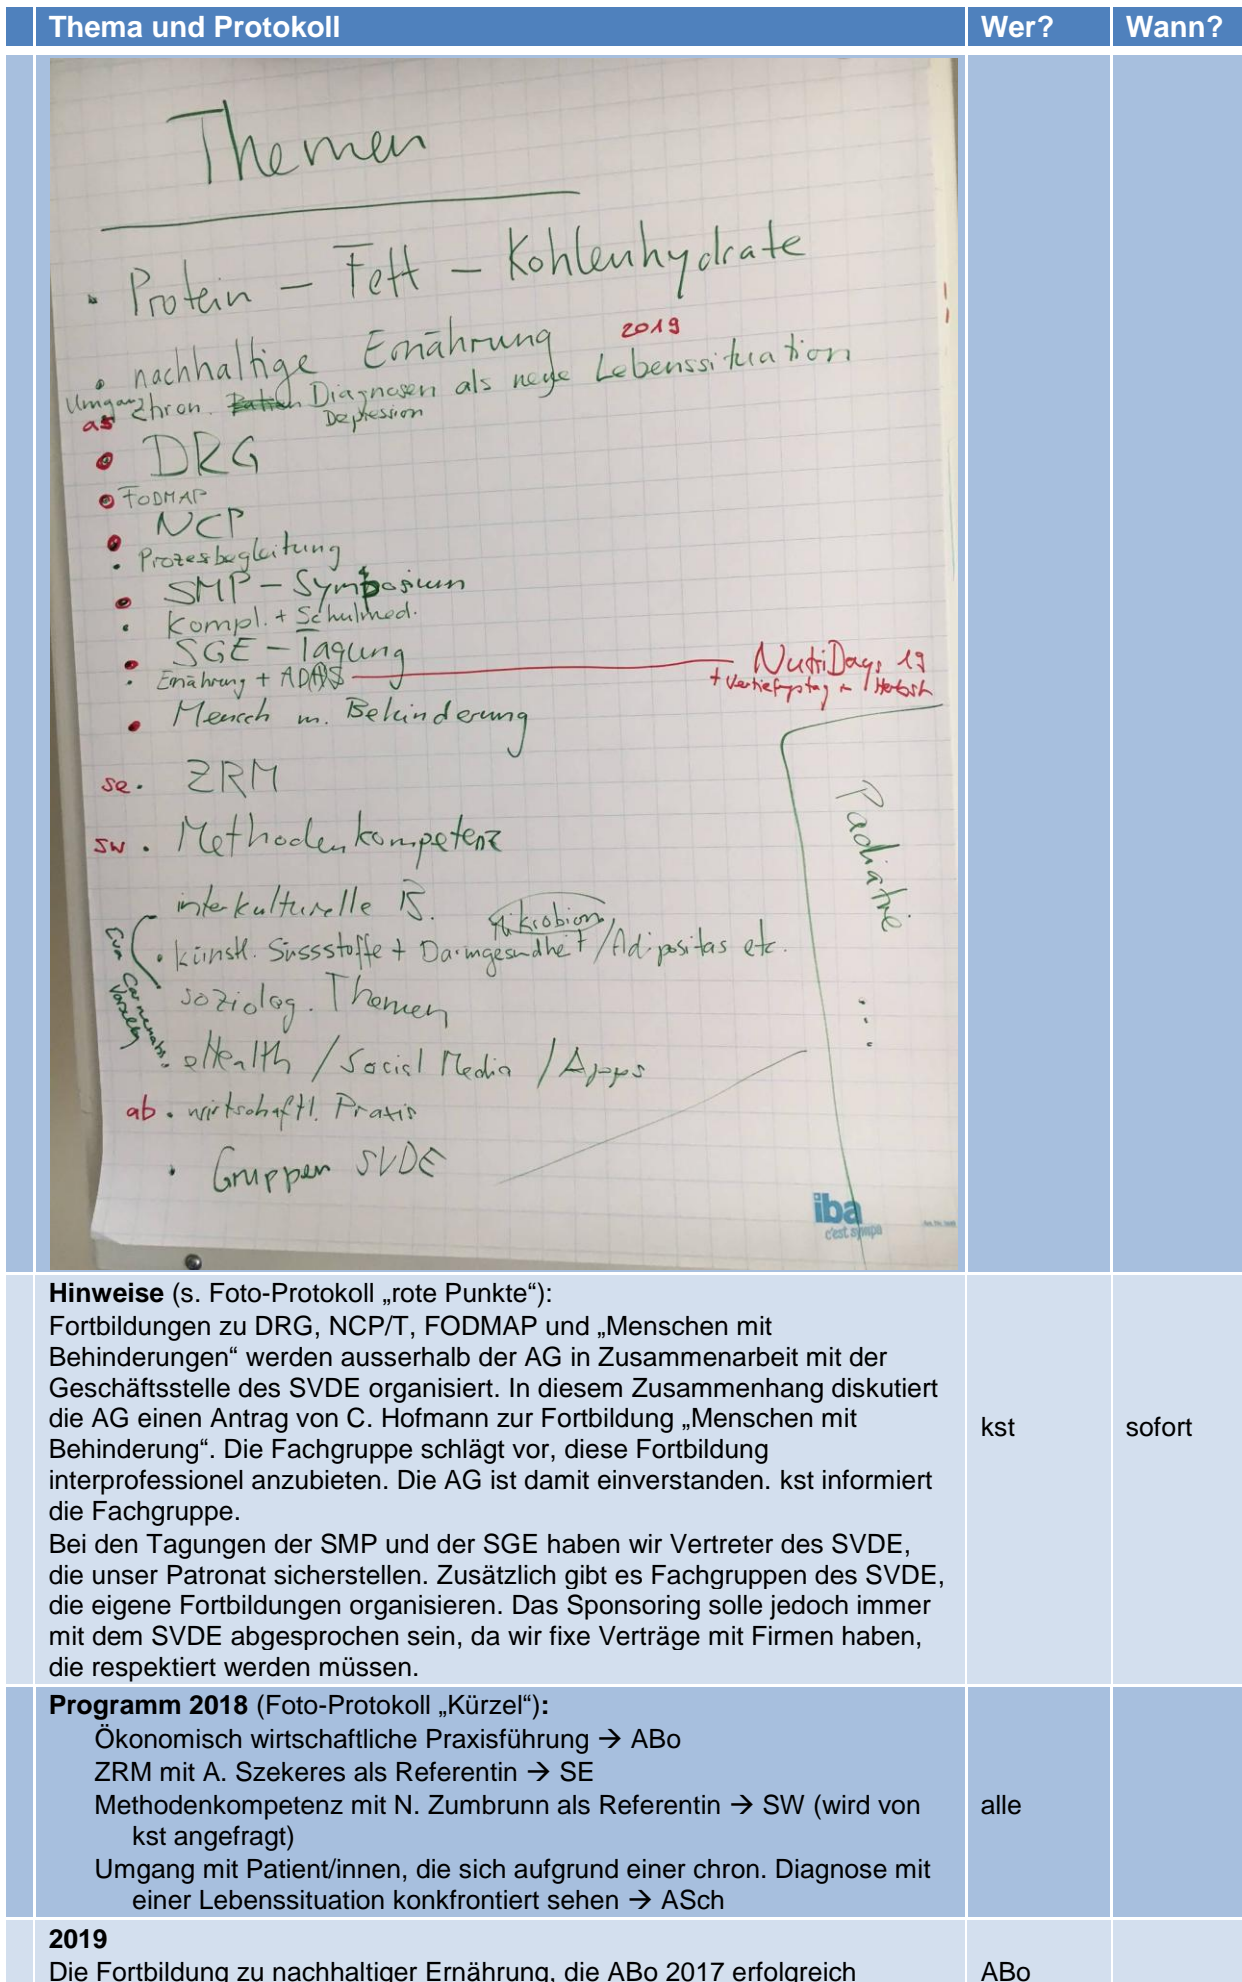 Thema und Protokoll Wer? Wann?
Themen
• Protein – Fett – Kohlenhydrate
• nachhaltige Ernährung 2019
Umgang chron. Diagnosen als neue Lebenssituation
as Depression
• DRG
• FODMAP
• NCP
• Prozessbegleitung
• SMP – Symposium
• Kompl. + Schulmed.
• SGE – Tagung
NutriDays 19
• Ernährung + ADHS
+ Vertiefungstag im Herbst
• Mensch m. Behinderung
se • ZRM
Pädiatrie
...
sw • Methodenkompetenz
• interkulturelle B.
Mikrobiom
• künstl. Süssstoffe + Darmgesundheit / Adipositas etc.
soziolog. Themen
• eHealth / Social Media / Apps
ab • wirtschaftl. Praxis
• Gruppen SVDE
iba
c'est sympa
Hinweise (s. Foto-Protokoll „rote Punkte“):
Fortbildungen zu DRG, NCP/T, FODMAP und „Menschen mit
Behinderungen“ werden ausserhalb der AG in Zusammenarbeit mit der
Geschäftsstelle des SVDE organisiert. In diesem Zusammenhang diskutiert
die AG einen Antrag von C. Hofmann zur Fortbildung „Menschen mit
Behinderung“. Die Fachgruppe schlägt vor, diese Fortbildung
interprofessionel anzubieten. Die AG ist damit einverstanden. kst informiert
die Fachgruppe.
Bei den Tagungen der SMP und der SGE haben wir Vertreter des SVDE,
die unser Patronat sicherstellen. Zusätzlich gibt es Fachgruppen des SVDE,
die eigene Fortbildungen organisieren. Das Sponsoring solle jedoch immer
mit dem SVDE abgesprochen sein, da wir fixe Verträge mit Firmen haben,
die respektiert werden müssen.
kst sofort
Programm 2018 (Foto-Protokoll „Kürzel“):
Ökonomisch wirtschaftliche Praxisführung → ABo
ZRM mit A. Szekeres als Referentin → SE
Methodenkompetenz mit N. Zumbrunn als Referentin → SW (wird von
kst angefragt)
Umgang mit Patient/innen, die sich aufgrund einer chron. Diagnose mit
einer Lebenssituation konkfrontiert sehen → ASch
alle
2019
Die Fortbildung zu nachhaltiger Ernährung, die ABo 2017 erfolgreich ABo